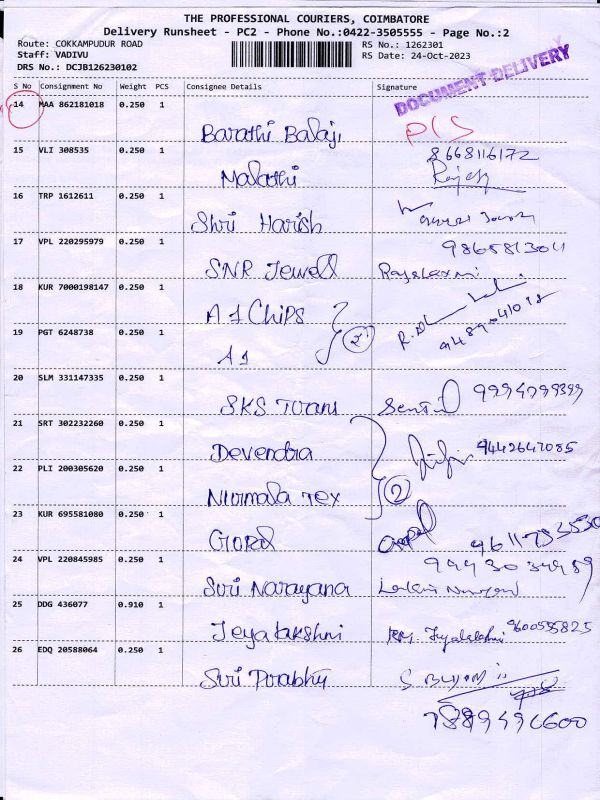 THE PROFESSIONAL COURIERS, COIMBATORE
Delivery Runsheet - PC2 - Phone No.:0422-3505555 - Page No.:2
Route: COKKAMPUDUR ROAD RS No.: 1262301
Staff: VADIVU RS Date: 24-Oct-2023
DRS No.: DCJB126230102
DOCUMENT DELIVERY
S No Consignment No Weight PCS Consignee Details Signature
14 MAA 862181018 0.250 1
Barathi Balaji P/S
15 VLI 308535 0.250 1 8668116172
Malathi Rajesh
16 TRP 1612611 0.250 1
Shri Harish
17 VPL 220295979 0.250 1 9865813011
SNR Jewell Rajalaxmi
18 KUR 7000198147 0.250 1
A1 Chips
19 PGT 6248738 0.250 1 2
A1
20 SLM 331147335 0.250 1
SKS Trans Senthil 9994799399
21 SRT 302232260 0.250 1
Devendra 9442647085
22 PLI 200305620 0.250 1 2
Nirmala Tex
23 KUR 695581080 0.250 1
Gopal Gopal
24 VPL 220845985 0.250 1
Sri Narayana
25 DDG 436077 0.910 1
Jeyalakshmi 9600555825
26 EDQ 20588064 0.250 1
Sri Prabhu